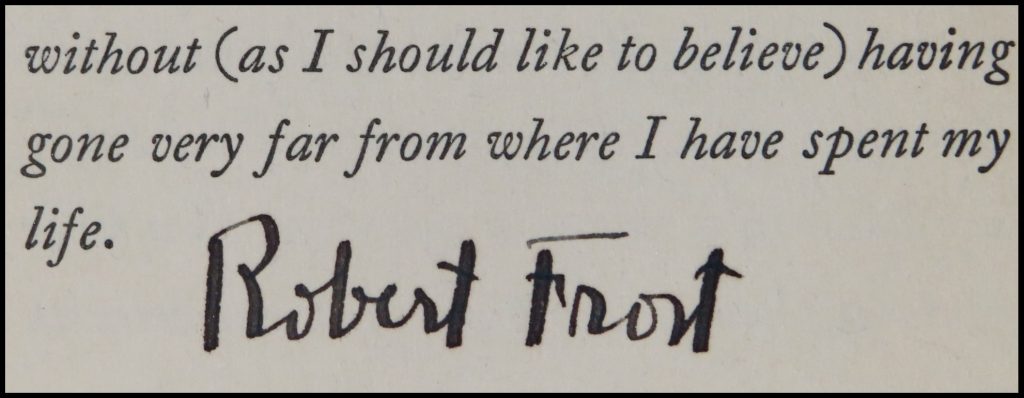 without (as I should like to believe) having
gone very far from where I have spent my
life.
Robert Frost